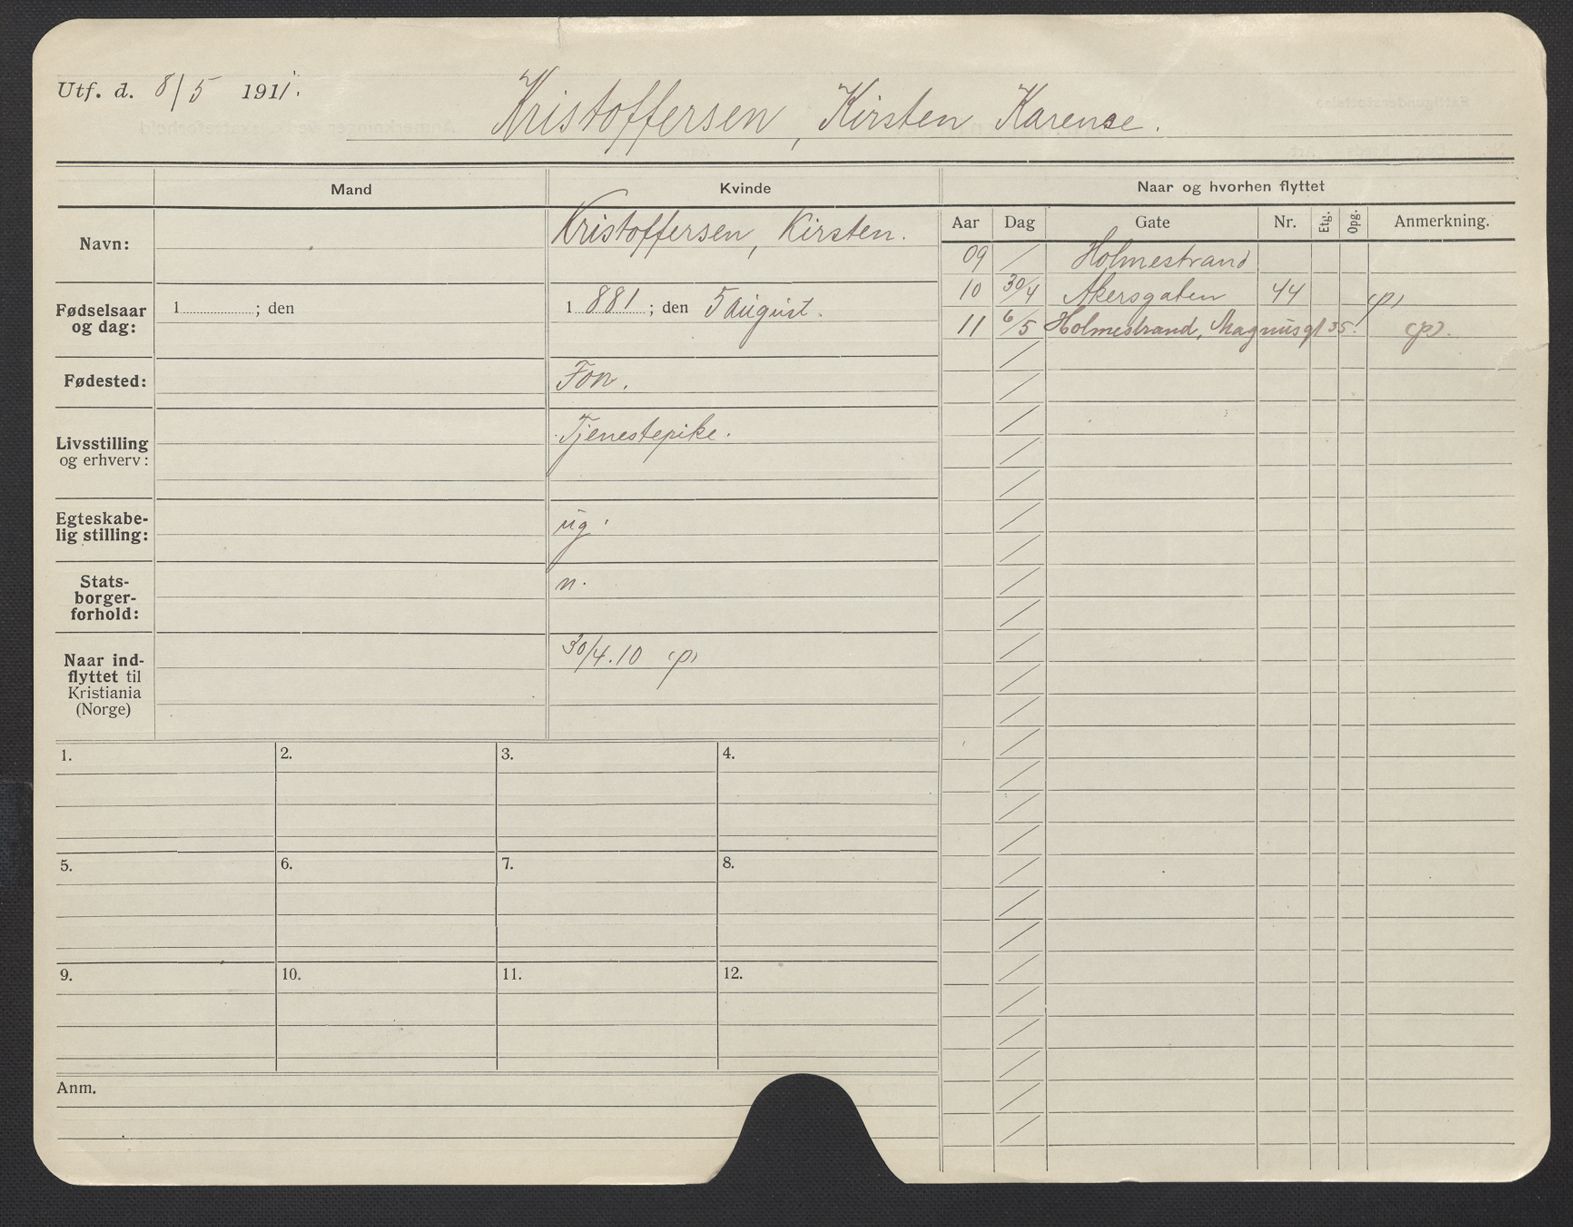 Utf. d. 8/5 1911.
Kristoffersen, Kirsten Karense.
Mand
Kvinde
Naar og hvorhen flyttet
Aar Dag Gate Nr. Etg. Opg. Anmerkning.
Navn: Kristoffersen, Kirsten.
Fødselsaar
og dag:
1 ; den
1 881 ; den 5 august.
Fødested: Fon.
Livsstilling
og erhverv:
Tjenestepike.
Egteskabe-
lig stilling:
ug.
Stats-
borger-
forhold:
n.
Naar ind-
flyttet til
Kristiania
(Norge)
30/4.10 (p)
09 / Holmestrand
10 30/4 Akersgaten 44 (p)
11 6/5 Holmestrand, Magnusgt 35. (p).
1. 2. 3. 4.
5. 6. 7. 8.
9. 10. 11. 12.
Anm.